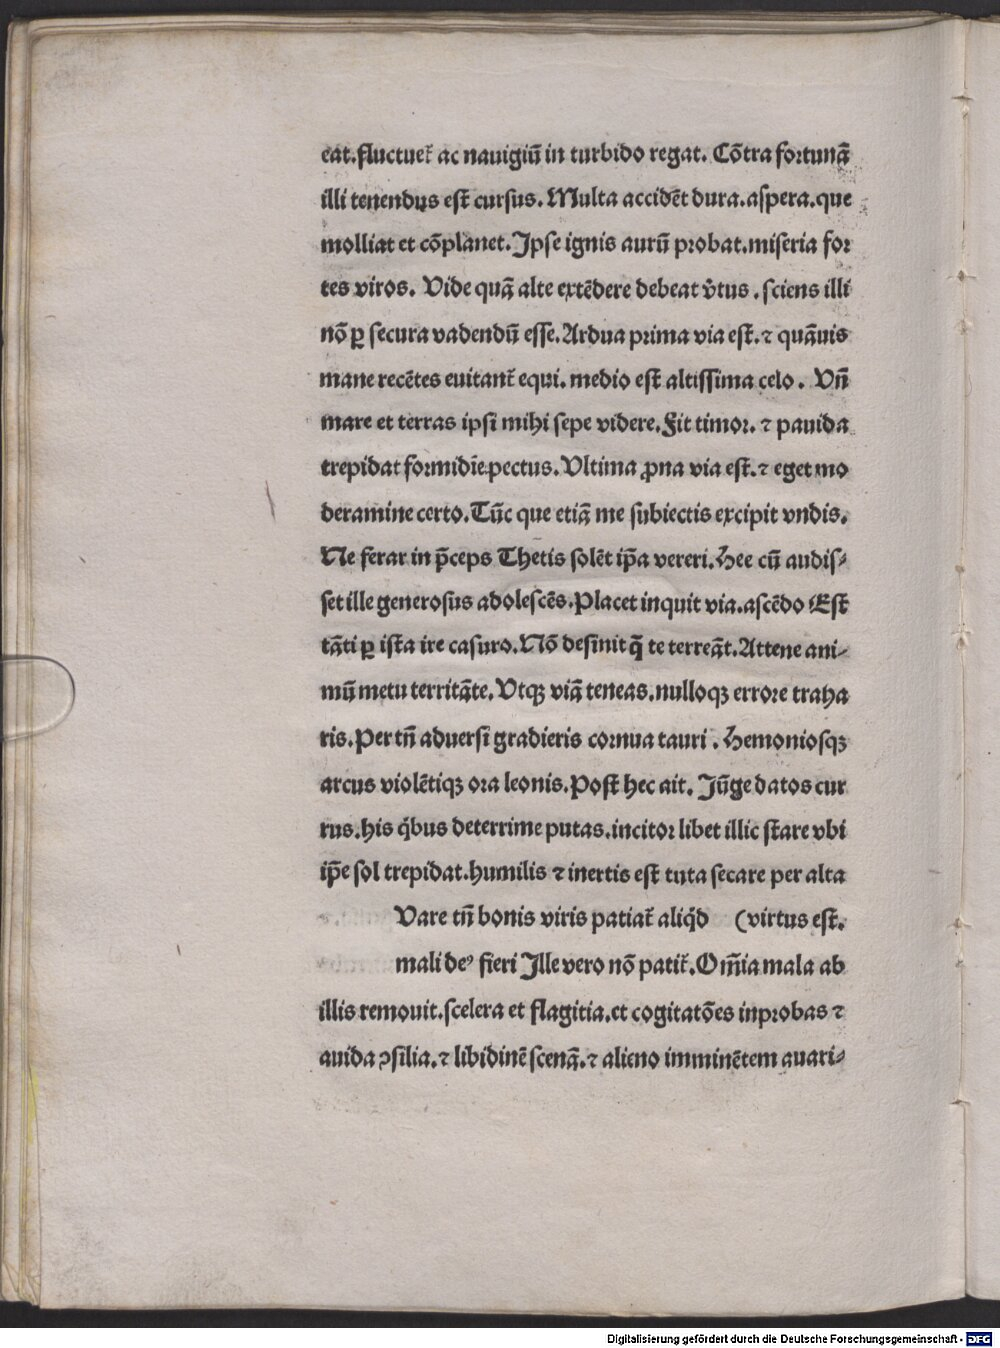 eat.fluctuet᷑ ac nauigiū in turbido regat. Cōtra fortunā
illi tenendus est cursus. Multa accidēt dura.aspera.que
molliat et cōplanet. Ipse ignis aurū probat.miseria for
tes viros. Vide quā alte extēdere debeat v̓tus .sciens illi
nō ꝑ secura vadendū esse. Ardua prima via est. ⁊ quāuis
mane recētes euitant᷑ equi. medio est altissima celo. Vn̄
mare et terras ipsi mihi sepe videre. Fit timor. ⁊ pauida
trepidat formidīe pectus. Vltima ꝓna via est. ⁊ eget mo
deramine certo. Tūc que etiā me subiectis excipit vndis.
Ne ferar in p̄ceps Thetis solēt ip̄a vereri. Hee cū audis⸗
set ille generosus adolescēs. Placet inquit via.ascēdo Est
tāti ꝑ ista ire casuro. Nō desinit q̄ te terreāt. Attene ani⸗
mū metu territāte. Vtqꝫ viā teneas.nulloqꝫ errore traha
ris. Per tn̄ aduersi gradieris cornua tauri . Hemoniosqꝫ
arcus violētiqꝫ ora leonis. Post hec ait. Jūge datos cur
rus. his q̇bus deterrime putas.incitor libet illic stare vbi
ip̄e sol trepidat.humilis ⁊ inertis est tuta secare per alta
Vare tn̄ bonis viris patiat᷑ aliq̇d (virtus est.
mali deꝰ fieri Ille vero nō patit᷑. Om̄ia mala ab
illis remouit.scelera et flagitia.et cogitatōes inprobas ⁊
auida ꝯsilia. ⁊ libidinē scenā. ⁊ alieno imminētem auari⸗
Digitalisierung gefördert durch die Deutsche Forschungsgemeinschaft - DFG